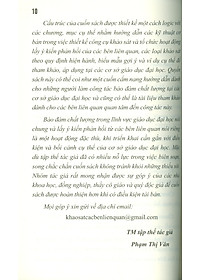 10
Cấu trúc của cuốn sách được thiết kế một cách logic với
các chương, mục cụ thể nhằm hướng dẫn các kỹ thuật cơ
bản trong việc thiết kế công cụ khảo sát và tổ chức hoạt động
lấy ý kiến phản hồi của các bên liên quan, các loại khảo sát
theo quy định hiện hành, biểu mẫu gợi ý và ví dụ cụ thể để
tham khảo, áp dụng tại các cơ sở giáo dục đại học. Quyển
sách này có thể coi như một cuốn cẩm nang hướng dẫn dành
cho những người làm công tác đảm bảo chất lượng tại các cơ
sở giáo dục đại học và cũng có thể là tài liệu tham khảo
dành cho các bên liên quan quan tâm đến công tác này.
Bảo đảm chất lượng trong lĩnh vực giáo dục đại học nói
chung và lấy ý kiến phản hồi từ các bên liên quan nói riêng
là
kiện và bối cảnh cụ thể của cơ sở giáo dục đại học. Mặc
dù tập thể tác giả đã có nhiều nỗ lực trong việc biên soạn
song chắc chắn cuốn sách không tránh khỏi những thiếu sót.
Nhóm tác giả rất mong nhận được sự góp ý của các nhà
khoa học, đồng nghiệp, thầy cô giáo và quý độc giả để cuốn
sách được hoàn thiện hơn khi có điều kiện tái bản.
Mọi góp ý xin gửi về địa chỉ email:
khaosatcacbenlienquan@gmail.com
TM tập thể tác giả
Phạm Thị Vân